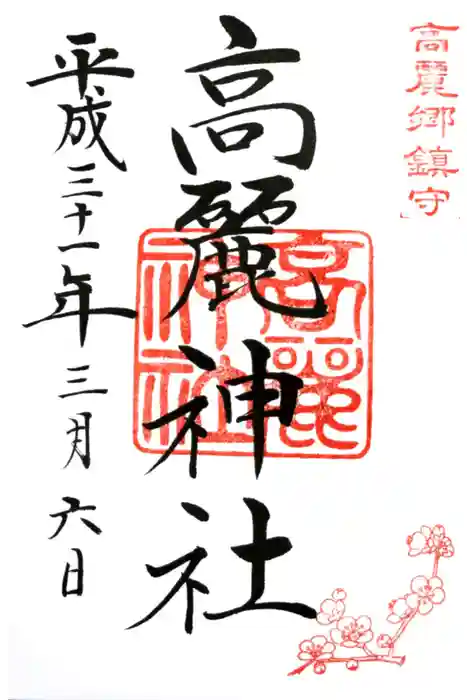 高麗郷鎮守
高麗神社
高麗
神社
平成三十一年三月六日